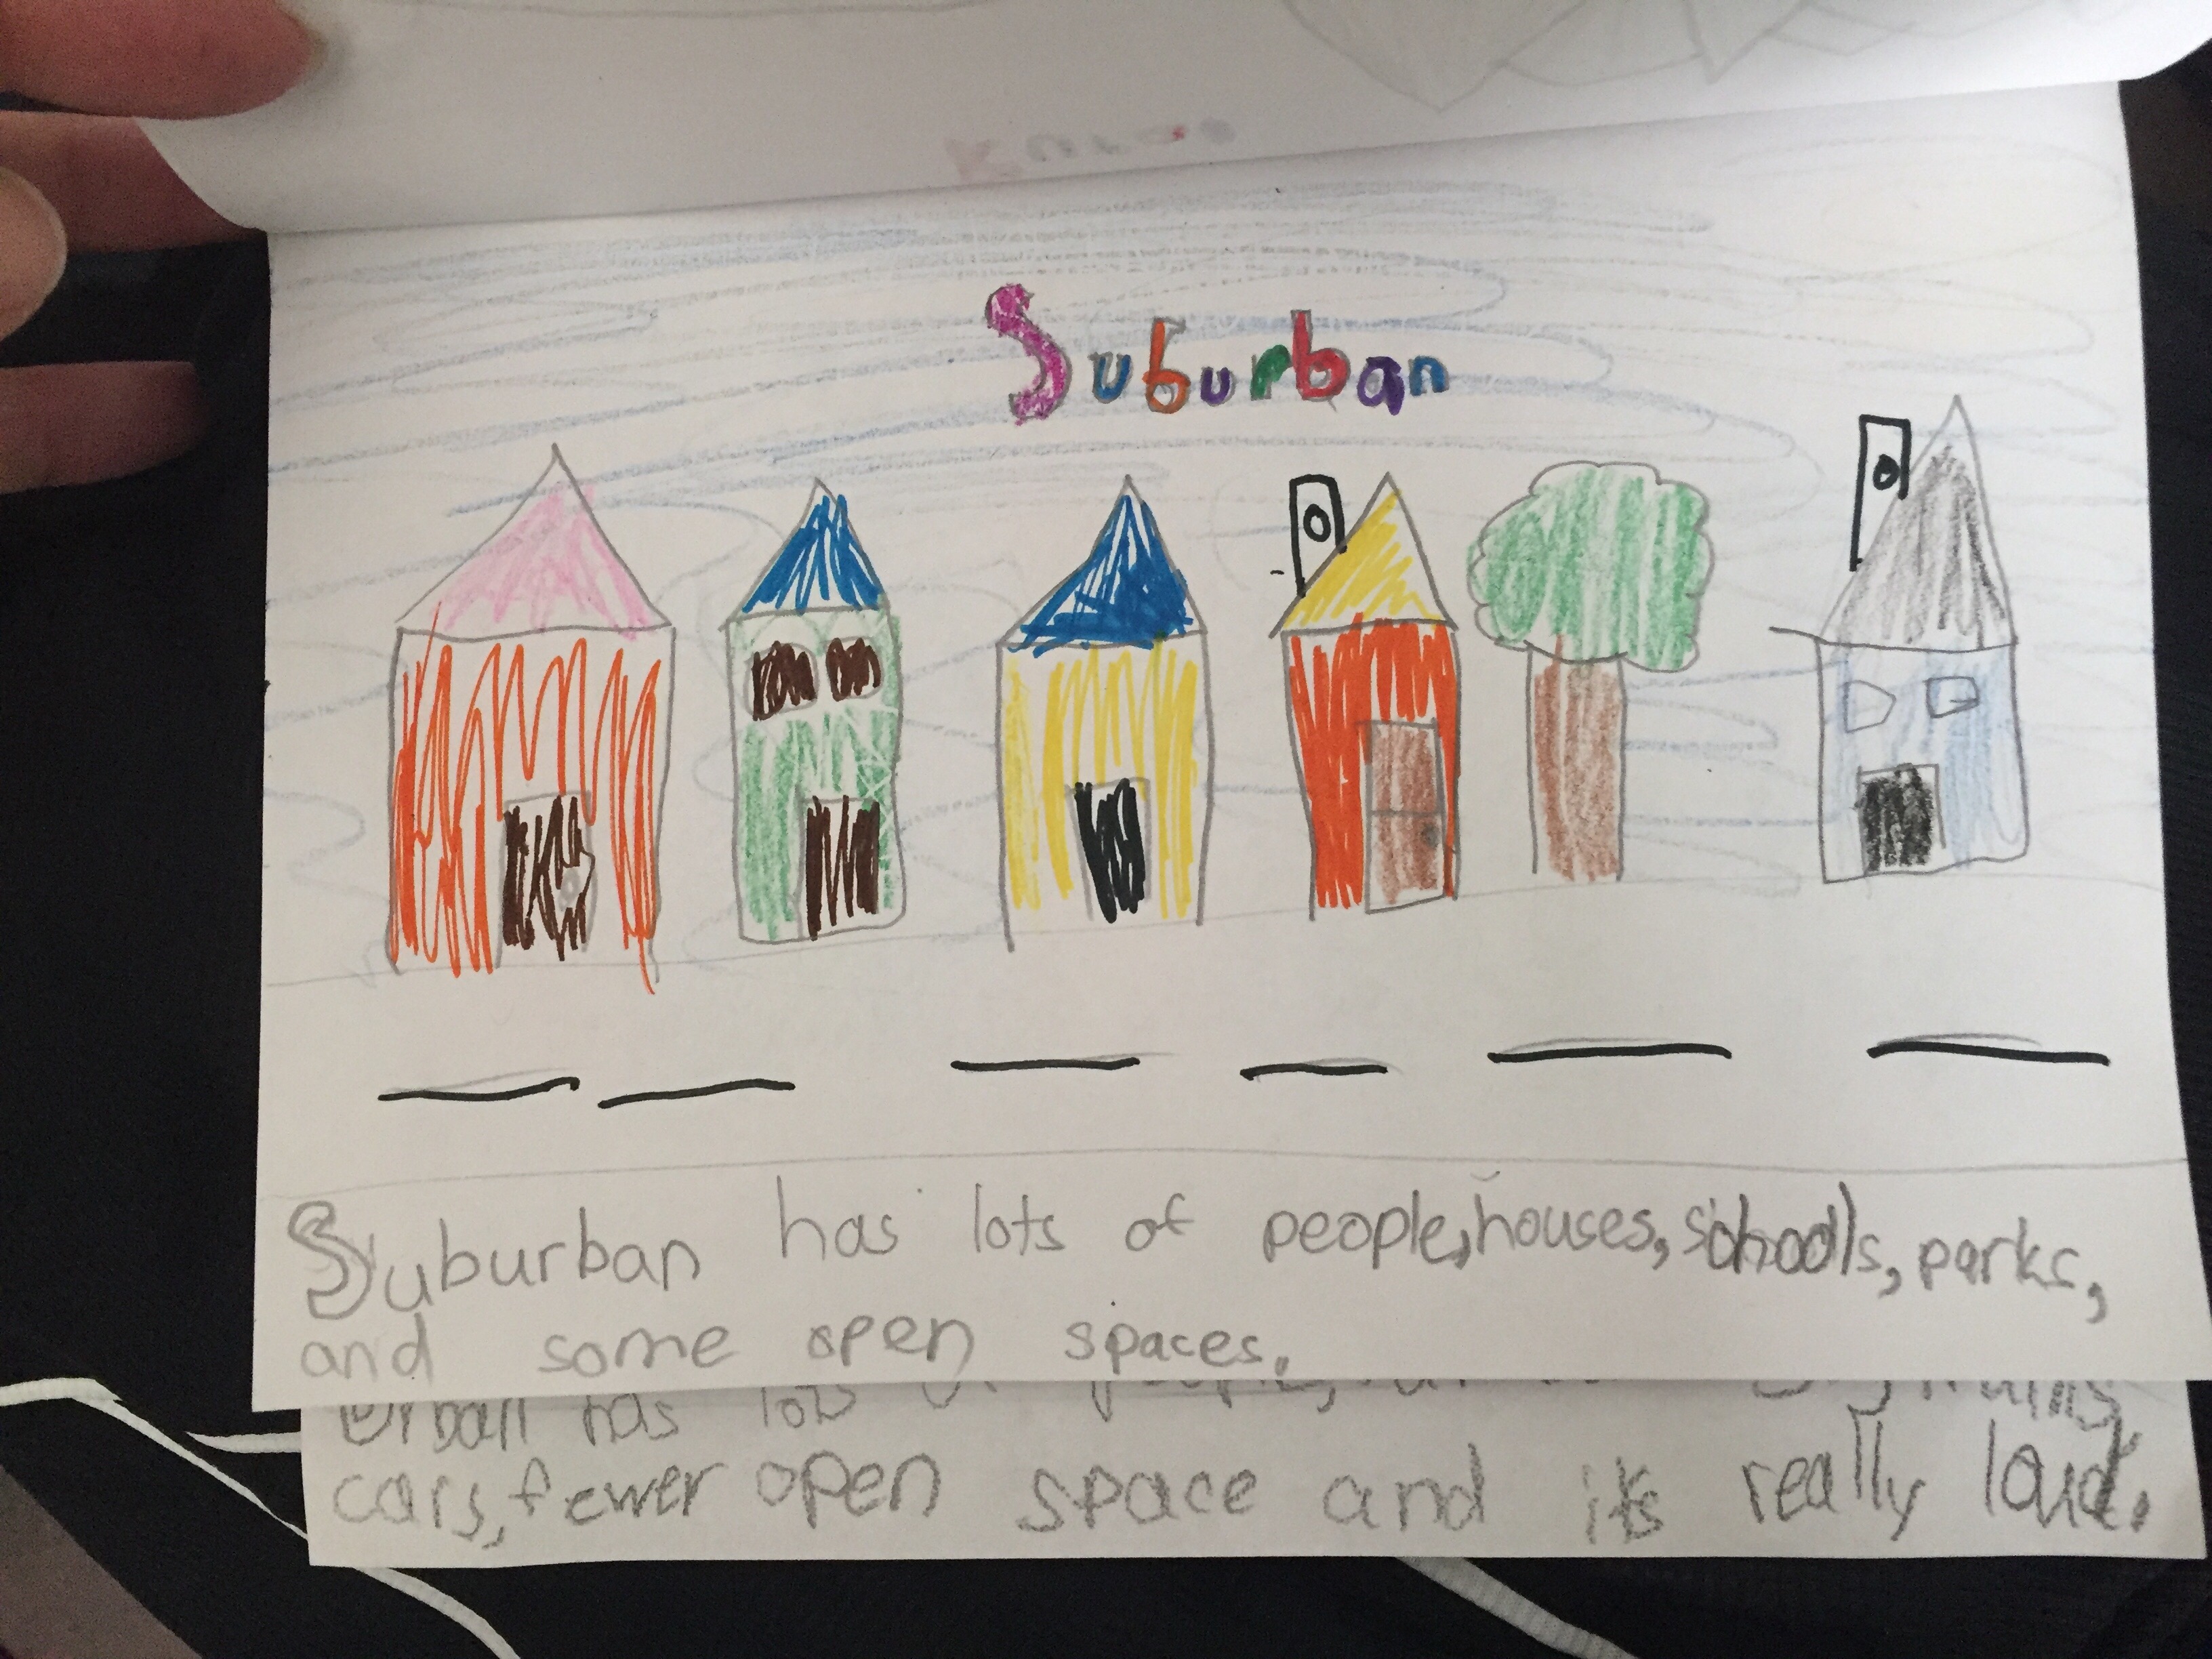 Suburban
Suburban has lots of people, houses, schools, parks,
and some open spaces.
Urban has lots
cars, fewer open space and its really loud.